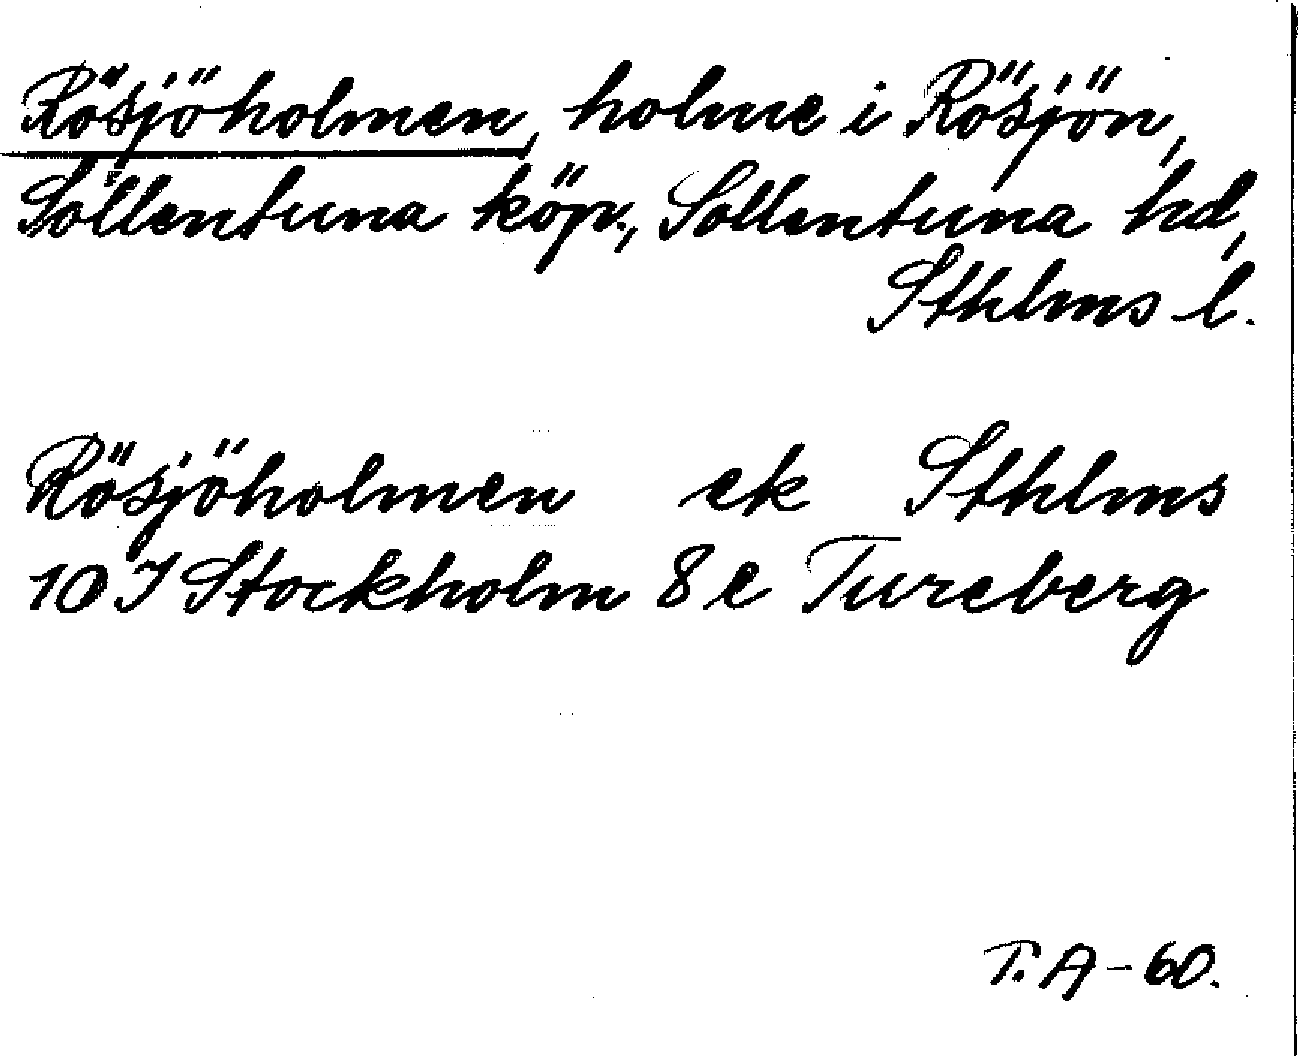 Rösjöholmen, holme i Rösjön,
Sollentuna köp., Sollentuna hd,
Sthlms l.
Rösjöholmen ek Sthlms
10 I Stockholm 8 e Tureberg
T. A-60.